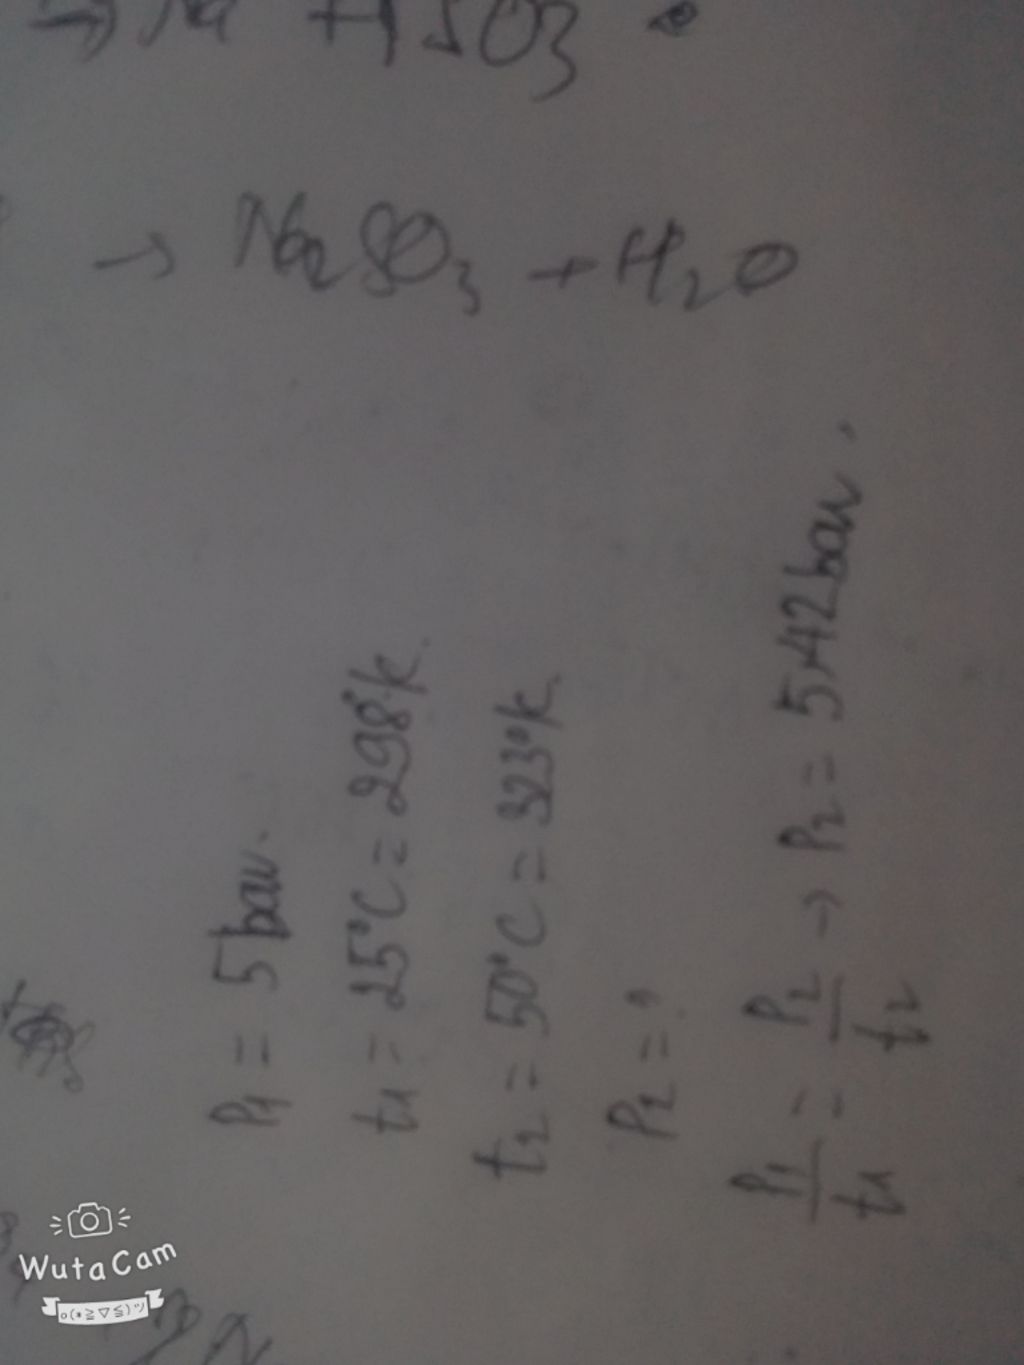 → Na HSO3
→ Na2SO3 + H2O
P1 = 5 bar.
t1 = 25°C = 298°K.
t2 = 50°C = 323°K.
P2 = ?
P1/t1 = P2/t2 → P2 = 5,42 bar.
WutaCam
o(*≧▽≦)ツ